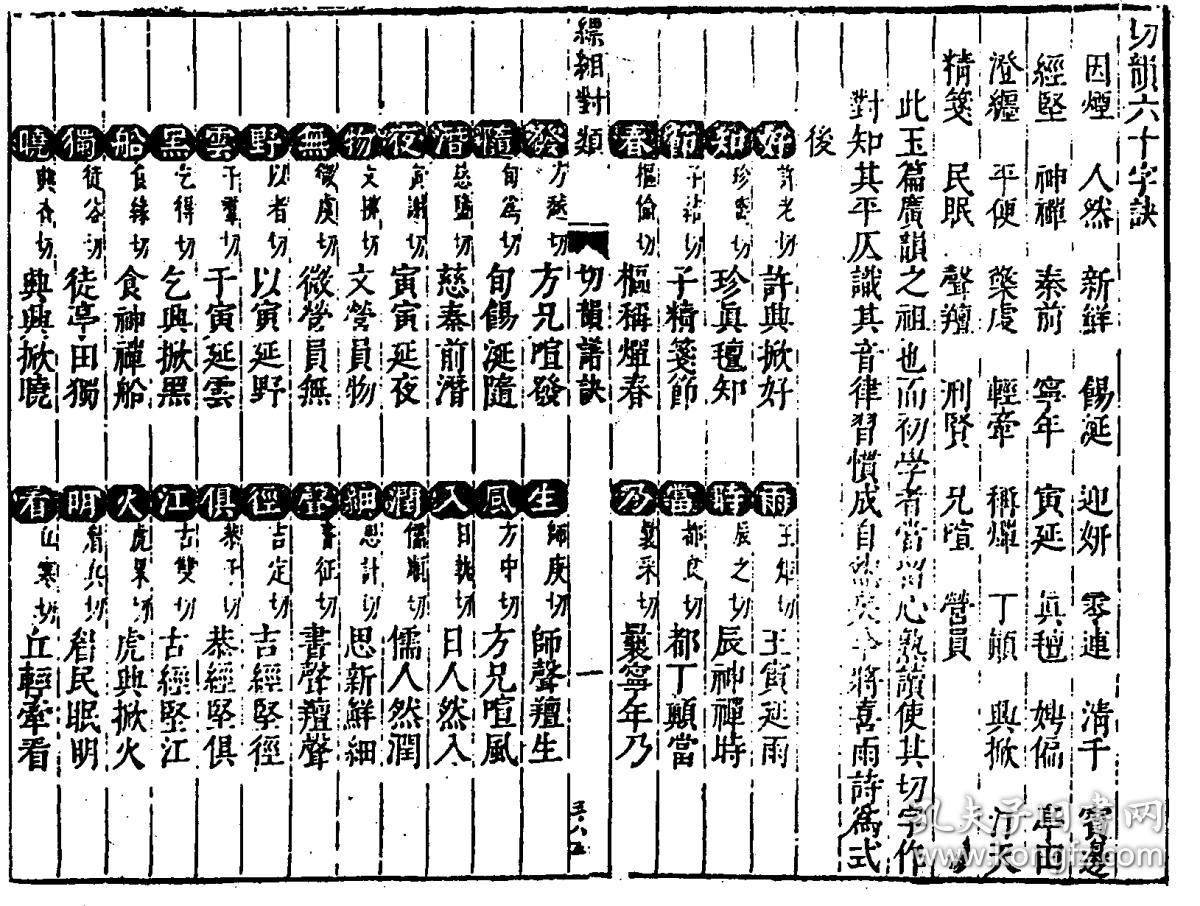 切韻六十字訣
因煙 人然 新鮮 餳涎 迎妍 零連 清千 賓邊
經堅 神禪 秦前 寧年 寅延 真氊 娉偏 亭田
澄纏 平便 擎虔 輕牽 稱燀 丁顛 興掀 汀天
精箋 民眠 聲羶 刑賢 兄喧 營員
此玉篇廣韻之祖也而初學者當留心熟讀使其切字作
對知其平仄識其音律習慣成自然矣今將喜雨詩為式
後
好 許老切 許興掀好 雨 王矩切 王寅延雨
知 珍離切 珍真氊知 時 辰之切 辰神禪時
節 子結切 子精箋節 當 都良切 都丁顛當
春 樞倫切 樞稱燀春 乃 曩采切 曩寧年乃
縹緗對類 切韻譜訣 一
發 方發切 方兄喧發 生 師庚切 師聲羶生
隨 旬為切 旬餳涎隨 風 方中切 方兄喧風
潛 慈鹽切 慈秦前潛 入 日執切 日人然入
夜 寅謝切 寅寅延夜 潤 儒順切 儒人然潤
物 文拂切 文營員物 細 思計切 思新鮮細
無 微虞切 微營員無 聲 書征切 書聲羶聲
野 以者切 以寅延野 徑 吉定切 吉經堅徑
雲 于羣切 于寅延雲 俱 恭于切 恭經堅俱
黑 乞得切 乞興掀黑 江 古雙切 古經堅江
船 食緣切 食神禪船 火 虎果切 虎興掀火
獨 徒谷切 徒亭田獨 明 眉兵切 眉民眠明
曉 典杳切 典興掀曉 看 丘寒切 丘輕牽看
孔夫子旧书网
www.kongfz.com